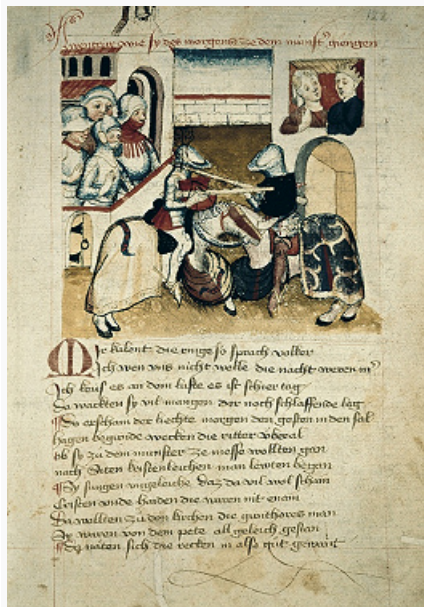 122
wie sy des morgens ze dem munst' giengen
Mir kulent die ringe so sprach volker
Ich wen vns nicht welle die nacht weren m'
Ich kius es an dem lufte es ist schier tag
Da wackten sy vil mangen der noch schlaffende lag
Do erscham der liechte morgen den gesten in den sal
hagen begunde wecken die ritter vberal
ob sy zu dem munster ze messe wollten gan
nach siten kristenleichen man lewten began
Sy sungen vngeleiche daz da vil wol scham
Cristen vnde haiden die waren nit enain
Da wollten zu den kirchen die guntheres man
Sy waren von dem pete all geleich gestan
Do naten sich die recken in also gut gewant